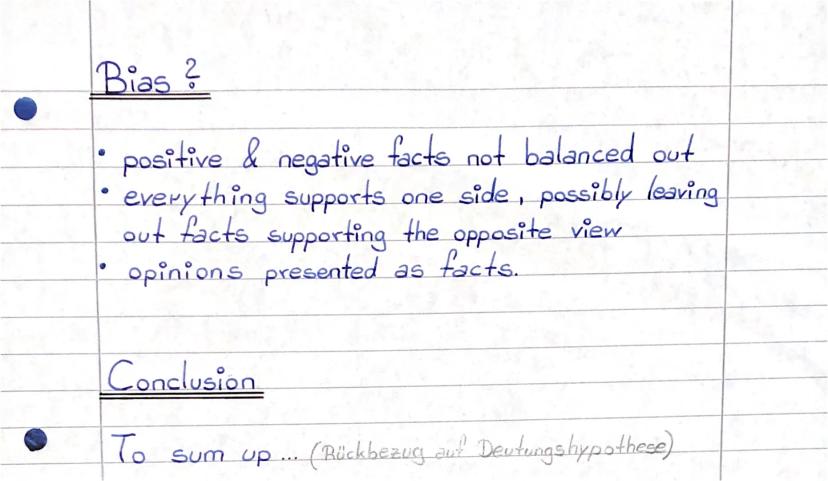 Bias?
• positive & negative facts not balanced out
• everything supports one side, possibly leaving
out facts supporting the opposite view
• opinions presented as facts.
Conclusion
To sum up... (Rückbezug auf Deutungshypothese)